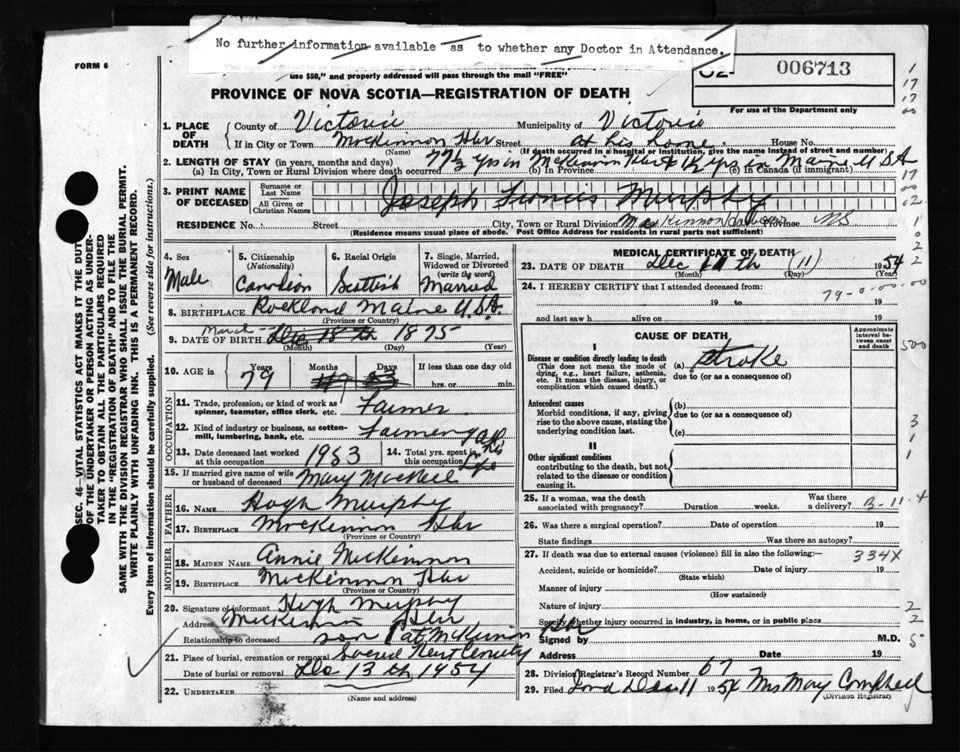 No further information available as to whether any Doctor in Attendance.
FORM 6
use $50," and properly addressed will pass through the mail "FREE"
006713
PROVINCE OF NOVA SCOTIA—REGISTRATION OF DEATH
For use of the Department only
SEC. 46—VITAL STATISTICS ACT MAKES IT THE DUTY
OF THE UNDERTAKER OR PERSON ACTING AS UNDER-
TAKER TO OBTAIN ALL THE PARTICULARS REQUIRED
IN THE "REGISTRATION OF DEATH" AND TO FILE THE
SAME WITH THE DIVISION REGISTRAR WHO SHALL ISSUE THE BURIAL PERMIT.
WRITE PLAINLY WITH UNFADING INK. THIS IS A PERMANENT RECORD.
Every item of information should be carefully supplied. (See reverse side for instructions.)
1. PLACE OF DEATH County of Victoria Municipality of Victoria
If in City or Town McKinnon Hbr Street at his home House No.
(Name) (If death occurred in a hospital or institution, give the name instead of street and number)
2. LENGTH OF STAY (in years, months and days) 77½ yrs in McKinnon Hbr 1½ yrs in Maine U S A
(a) In City, Town or Rural Division where death occurred (b) In Province (c) In Canada (if immigrant)
3. PRINT NAME OF DECEASED Surname or Last Name
All Given or Christian Names Joseph Francis Murphy
RESIDENCE No. Street City, Town or Rural Division MacKinnon Harbour Province NS
(Residence means usual place of abode. Post Office Address for residents in rural parts not sufficient)
4. Sex Male
5. Citizenship (Nationality) Canadian
6. Racial Origin Scottish
7. Single, Married, Widowed or Divorced (write the word) Married
8. BIRTHPLACE Rockland Maine U.S.A.
(Province or Country)
March
9. DATE OF BIRTH Dec 18 th 1875
(Month) (Day) (Year)
10. AGE in Years 79 Months Days If less than one day old
hrs. or min.
OCCUPATION
11. Trade, profession, or kind of work as spinner, teamster, office clerk, etc. Farmer
12. Kind of industry or business, as cotton-mill, lumbering, bank, etc. Farming
13. Date deceased last worked at this occupation 1953
14. Total yrs. spent in this occupation All his life
15. If married give name of wife or husband of deceased Mary MacNeil
FATHER
16. NAME Hugh Murphy
17. BIRTHPLACE McKinnon Hbr
(Province or Country)
MOTHER
18. MAIDEN NAME Annie McKinnon
19. BIRTHPLACE McKinnon Hbr
(Province or Country)
20. Signature of informant Hugh Murphy
Address McKinnon Hbr
Relationship to deceased son
21. Place of burial, cremation or removal Sacred Heart Cemetery
Date of burial or removal Dec 13 th 1954
22. UNDERTAKER
(Name and address)
MEDICAL CERTIFICATE OF DEATH
23. DATE OF DEATH Dec 11 th (11) 1954
(Month) (Day)
24. I HEREBY CERTIFY that I attended deceased from:
19 to 19
and last saw h alive on 19
CAUSE OF DEATH
Approximate interval between onset and death
I
Disease or condition directly leading to death (a) Stroke
(This does not mean the mode of dying, e.g., heart failure, asthenia, etc. It means the disease, injury, or complication which caused death.)
due to (or as a consequence of)
Antecedent causes (b)
Morbid conditions, if any, giving rise to the above cause, stating the underlying condition last.
due to (or as a consequence of)
(c)
II
Other significant conditions
contributing to the death, but not related to the disease or condition causing it.
25. If a woman, was the death associated with pregnancy? Duration weeks. Was there a delivery?
26. Was there a surgical operation? Date of operation 19
State findings Was there an autopsy?
27. If death was due to external causes (violence) fill in also the following:— 334X
Accident, suicide or homicide? Date of injury 19
(State which)
Manner of injury
(How sustained)
Nature of injury
Specify whether injury occurred in industry, in home, or in public place
Signed by M.D.
Address Date 19
28. Division Registrar's Record Number 67
29. Filed Dec 11 1954 Mrs Mary Campbell
(Division Registrar)